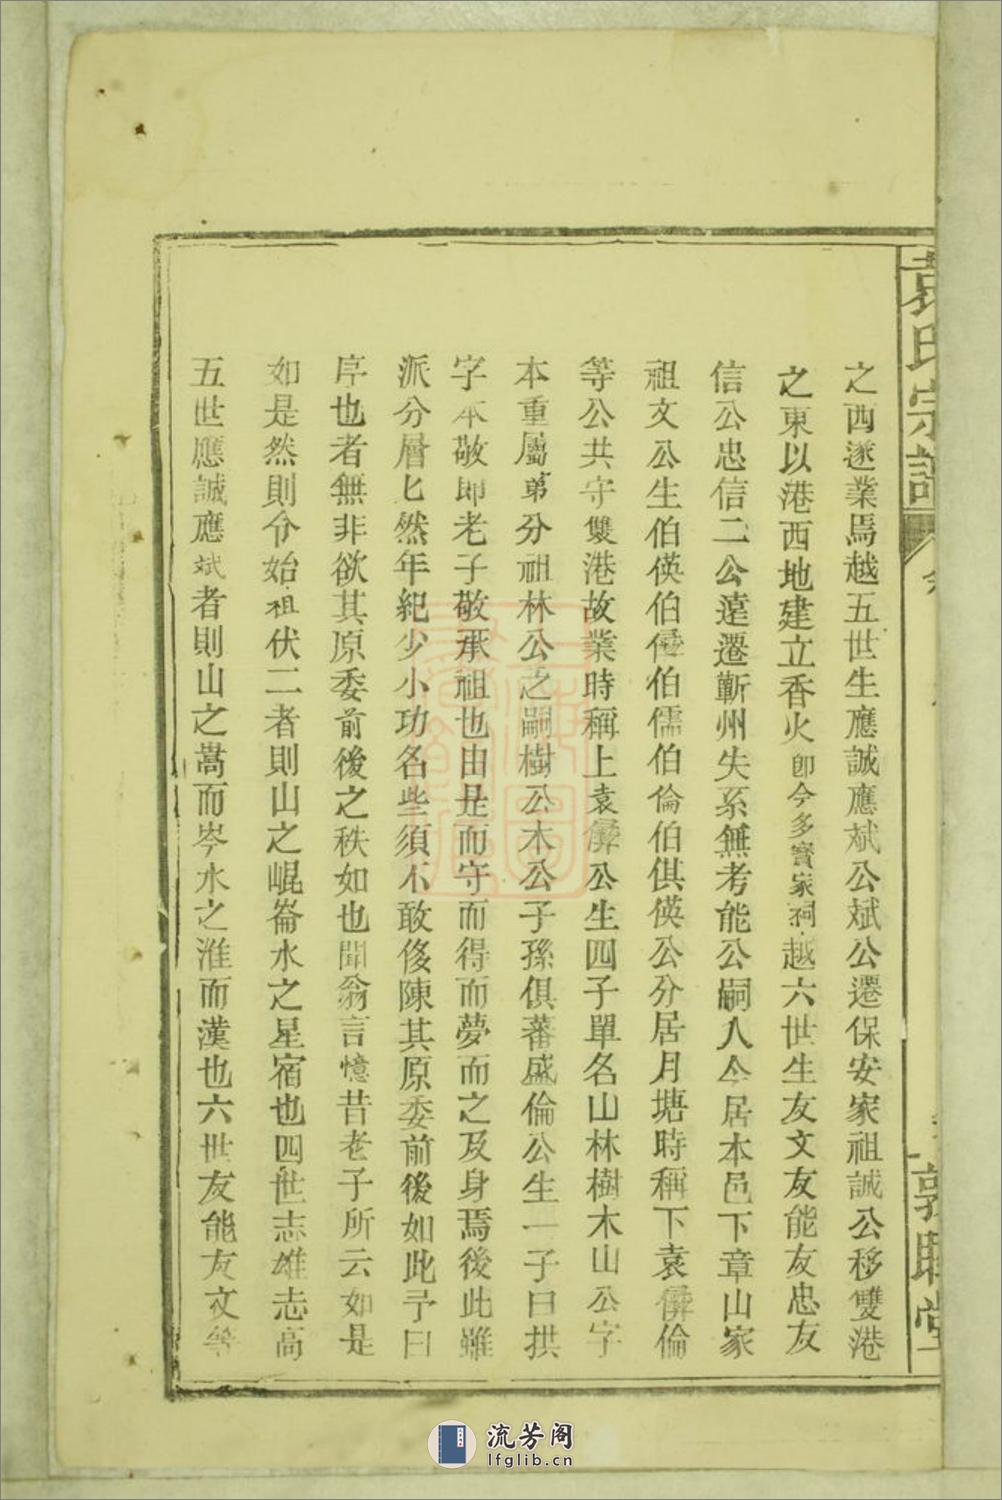 袁氏宗譜
敦睦堂
之西遂業焉越五世生應誠應斌公斌公遷保安家祖誠公移雙港
之東以港西地建立香火卽今多寳家祠越六世生友文友能友忠友
信公忠信二公遠遷蘄州失系無考能公嗣人今居本邑下章山家
祖文公生伯偀伯儚伯儒伯倫伯俱偀公分居月塘時稱下袁倫
等公共守雙港故業時稱上袁公生四子單名山林樹木山公字
本重屬弟分祖林公之嗣樹公木公子孫俱蕃盛倫公生一子曰拱
字本敬即老子敬承祖也由是而守而得而夢而之及身焉後此雖
派分層匕然年紀少小功名些須不敢俊陳其原委前後如此予曰
序也者無非欲其原委前後之秩如也聞翁言憶昔老子所云如是
如是然則令始祖伏二者則山之崐崙水之星宿也四世志雄志高
五世應誠應斌者則山之嵩而岑水之淮而漢也六世友能友文等
流芳阁
lfglib.cn